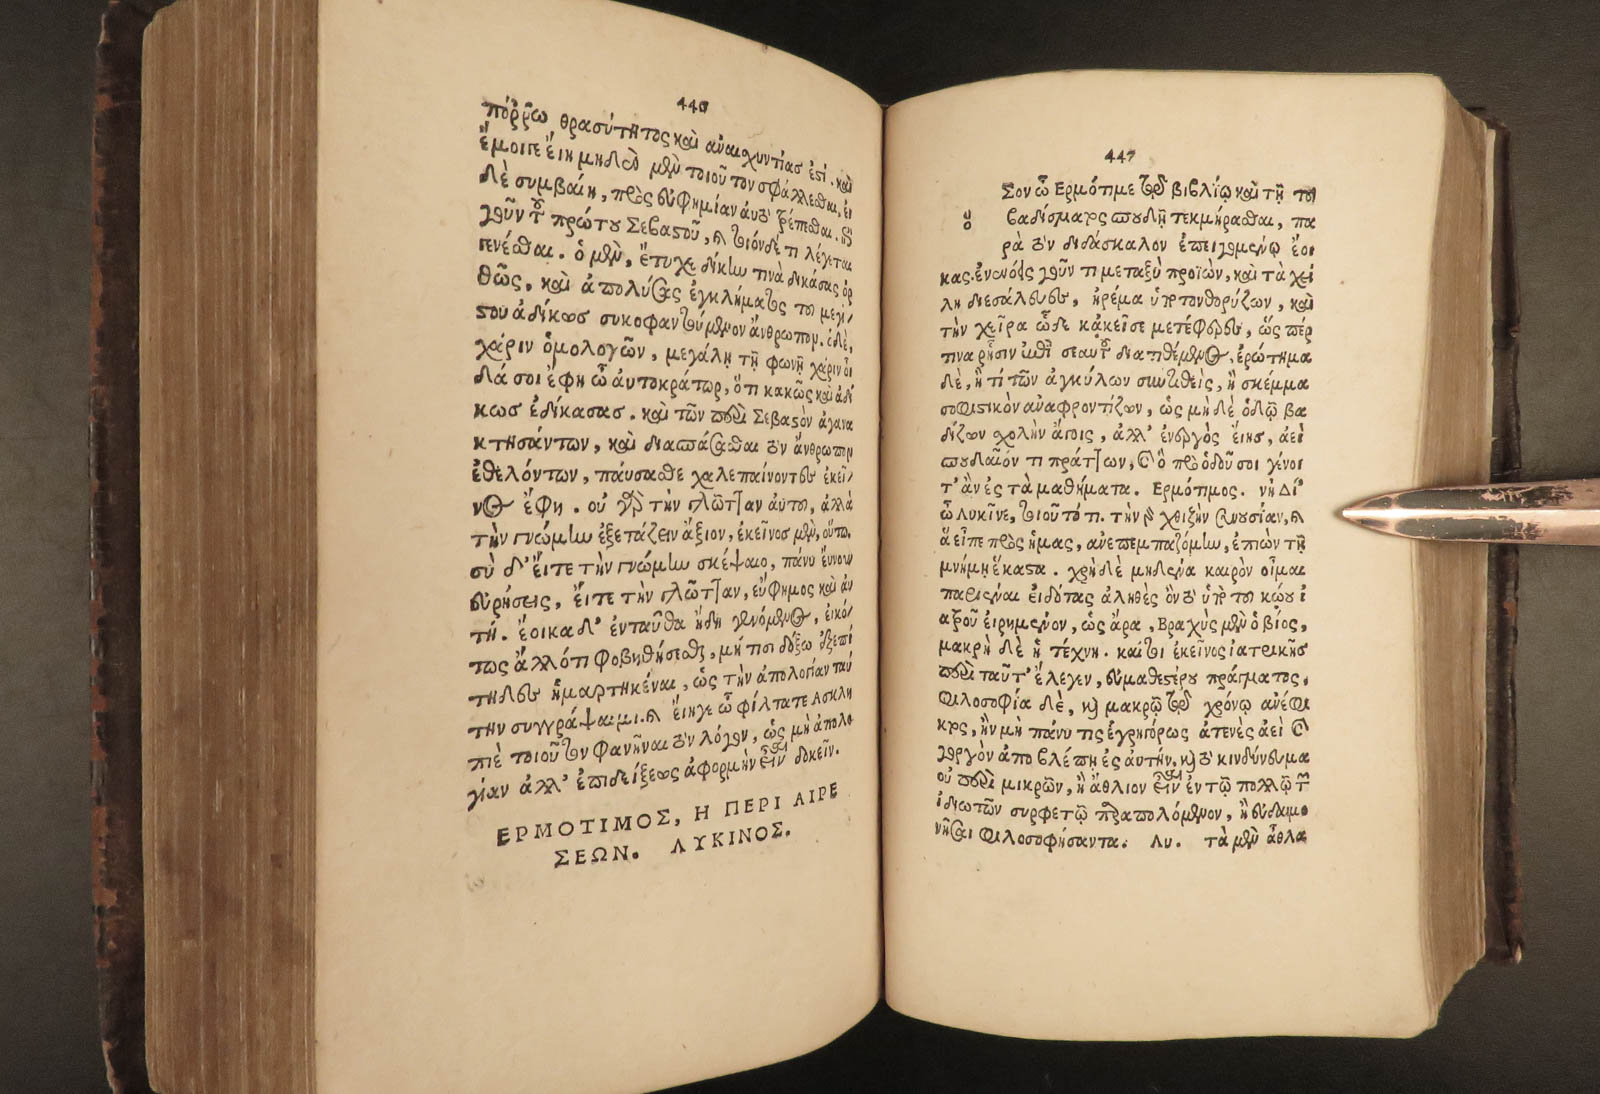 446
πόῤῥω θρασύτητος καὶ ἀναισχυντίας ἐστί. καὶ
ἔμοιγε εἴη μηδὲν μὲν τοιοῦτον σφάλλεσθαι, εἰ
δὲ συμβαίη, πρὸς εὐφημίαν αὐτὸ τρέπεσθαι.
γοῦν τοῦ πρώτου Σεβαστοῦ, καὶ τοιόνδέ τι λέγεται
γενέσθαι. ὁ μὲν, ἔτυχε δίκην τινὰ δικάσας ὀρ
θῶς, καὶ ἀπολύσας ἐγκλήματος τοῦ μεγί-
στου ἀδίκως συκοφαντούμενον ἄνθρωπον. ὁ δὲ,
χάριν ὁμολογῶν, μεγάλῃ τῇ φωνῇ χάριν οἶ
δά σοι ἔφη ὦ αὐτοκράτωρ, ὅτι κακῶς καὶ ἀδί
κως ἐδίκασας. καὶ τῶν περὶ Σεβαστὸν ἀγανα
κτησάντων, καὶ διασπάσασθαι τὸν ἄνθρωπον
ἐθελόντων, παύσασθε χαλεπαίνοντες ἐκεῖ-
νος ἔφη. οὐ γὰρ τὴν γλῶτταν αὐτοῦ, ἀλλὰ
τὴν γνώμην ἐξετάζειν ἄξιον, ἐκεῖνος μὲν, οὕτω.
σὺ δ' εἴτε τὴν γνώμην σκέψαιο, πάνυ εὔνουν
εὑρήσεις, εἴτε τὴν γλῶτταν, εὔφημος καὶ αὐ
τή. ἔοικα δ' ἐνταῦθα ἤδη γενόμενος, εἰκό-
τως ἄλλό τι φοβηθήσεσθαι, μή τισι δόξω ἐξεπί
τηδες ἡμαρτηκέναι, ὡς τὴν ἀπολογίαν ταύ
την συγγράψαιμι. καὶ εἴη γε ὦ φίλτατε Ἀσκλη
πιὲ τοιοῦτον φανῆναι τὸν λόγον, ὡς μὴ ἀπολο
γίαν ἀλλ' ἐπιδείξεως ἀφορμὴν εἶναι δοκεῖν.
ΕΡΜΟΤΙΜΟΣ, Η ΠΕΡΙ ΑΙΡΕ
ΣΕΩΝ. ΛΥΚΙΝΟΣ.
447
Σον ὦ Ερμότιμε τῷ βιβλίῳ καὶ τῇ τοῦ
βαδίσματος σπουδῇ τεκμήρασθαι, πα
ρὰ τὸν διδάσκαλον ἐπειγομένῳ ἔοι
κας. ἐνενόεις γοῦν τι μεταξὺ προϊών, καὶ τὰ χεί
λη διεσάλευες, ἠρέμα ὑποτονθορύζων, καὶ
τὴν χεῖρα ὧδε κἀκεῖσε μετέφερες, ὥς περ
τινα ῥῆσιν ἐπὶ σεαυτοῦ διατιθέμενος, ἐρώτημα
δὲ, ἤ τί τῶν ἀγκύλων συντιθείς, ἢ σκέμμα
σοφιστικὸν ἀναφροντίζων, ὡς μὴ δὲ ὁδῷ βα
δίζων σχολὴν ἄγοις, ἀλλ' ἐνεργὸς εἴης, ἀεὶ
σπουδαῖόν τι πράττων, καὶ ὃ πρὸ ὁδοῦ σοι γένοι
τ' ἂν ἐς τὰ μαθήματα. Ερμότιμος. νὴ Δί'
ὦ Λυκῖνε, τοιοῦτό τι. τὴν γὰρ χθιζὴν συνουσίαν, καὶ
ἃ εἶπε πρὸς ἡμας, ἀνεπεμπαζόμην, ἐπιὼν τῇ
μνήμῃ ἕκαστα. χρὴ δὲ μηδένα καιρὸν οἶμαι
παριέναι εἰδότας ἀληθὲς ὂν τὸ ὑπὸ τοῦ κώου ἰ
ατροῦ εἰρημένον, ὡς ἄρα, Βραχὺς μὲν ὁ βίος,
μακρὴ δὲ ἡ τέχνη. καί τοι ἐκεῖνος ἰατρικῆς
περὶ ταῦτ' ἔλεγεν, εὐμαθεστέρου πράγματος,
Φιλοσοφία δὲ, καὶ μακρῷ τῷ χρόνῳ ἀνέφι
κτος, ἢν μὴ πάνυ τις ἐγρηγόρως ἀτενὲς ἀεὶ καὶ
γοργὸν ἀποβλέπῃ ἐς αὐτήν, καὶ τὸ κινδύνευμα
οὐ περὶ μικρῶν, ἢ ἄθλιον εἶναι ἐν τῷ πολλῷ τῶν
ἰδιωτῶν συρφετῷ παραπολόμενον, ἢ εὐδαιμο
νῆσαι φιλοσοφήσαντα. Λυ. τὰ μὲν ἆθλα